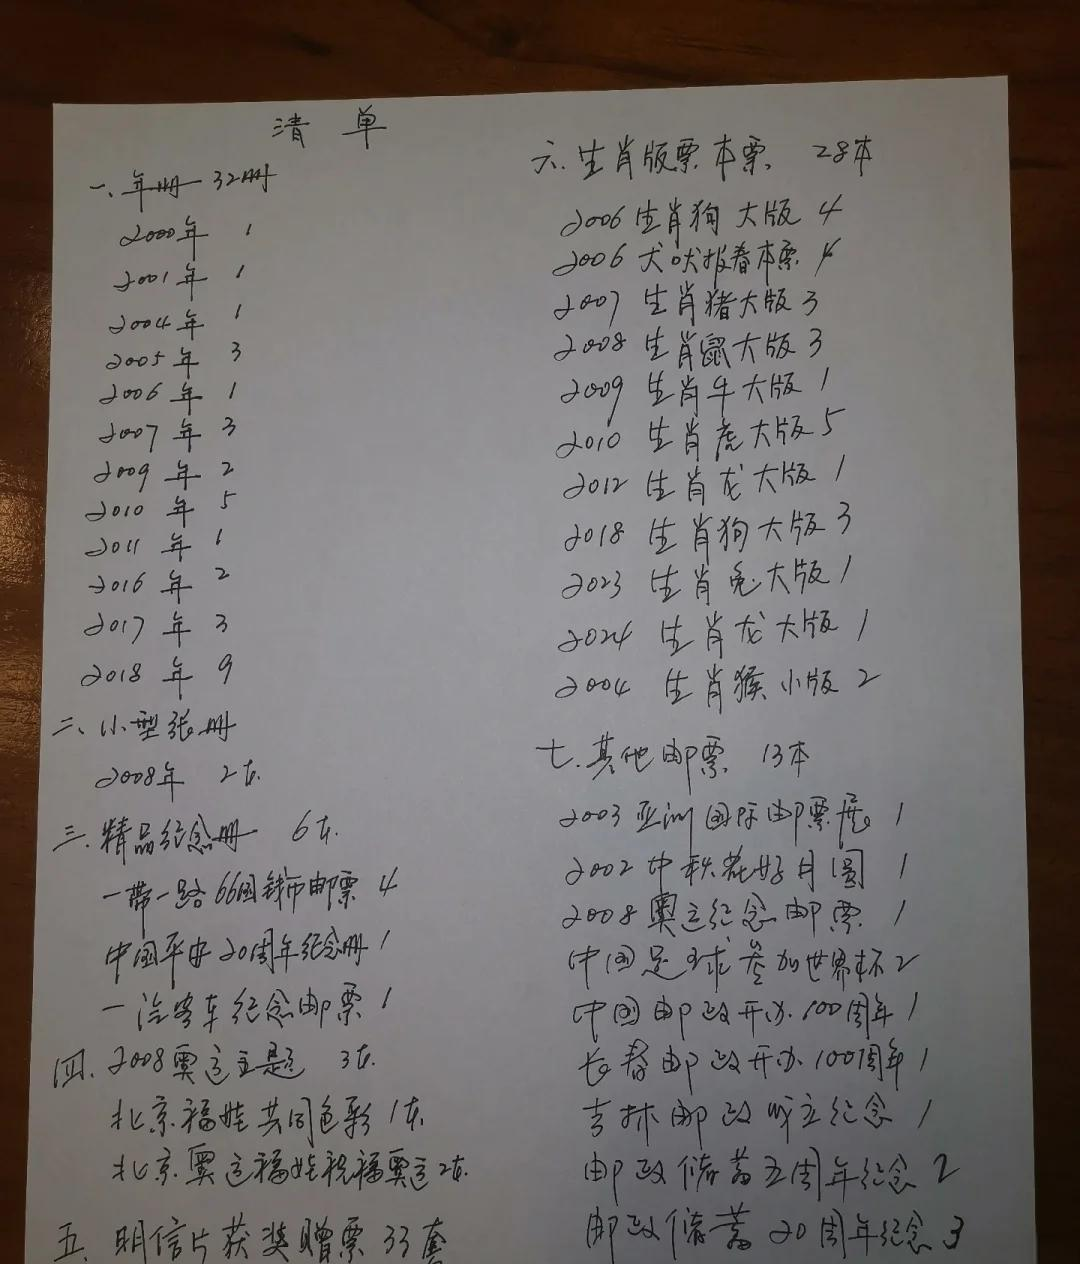 清单
一、年册 32册
2000年 1
2001年 1
2004年 1
2005年 3
2006年 1
2007年 3
2009年 2
2010年 5
2011年 1
2016年 2
2017年 3
2018年 9
二、小型张册
2008年 2本.
三、精品纪念册 6本.
一带一路66国钱币邮票 4
中国平安20周年纪念册 1
一汽客车纪念邮票 1
四、2008奥运主题 3本.
北京福娃共同色彩 1本.
北京奥运福娃祝福奥运2本.
五、明信片获奖赠票 33套
六.生肖版票本票 28本
2006 生肖狗 大版 4
2006 犬吠报春本票 4
2007 生肖猪大版 3
2008 生肖鼠大版 3
2009 生肖牛大版 1
2010 生肖虎大版 5
2012 生肖龙大版 1
2018 生肖狗大版 3
2023 生肖兔大版 1
2024 生肖龙大版 1
2004 生肖猴小版 2
七.其他邮票 13本
2003 亚洲国际邮票展 1
2002 中秋花好月圆 1
2008奥运纪念邮票 1
中国足球参加世界杯 2
中国邮政开办.100周年 1
长春邮政开办100周年 1
吉林邮政成立纪念 1
邮政储蓄五周年纪念 2
邮政储蓄20周年纪念 3